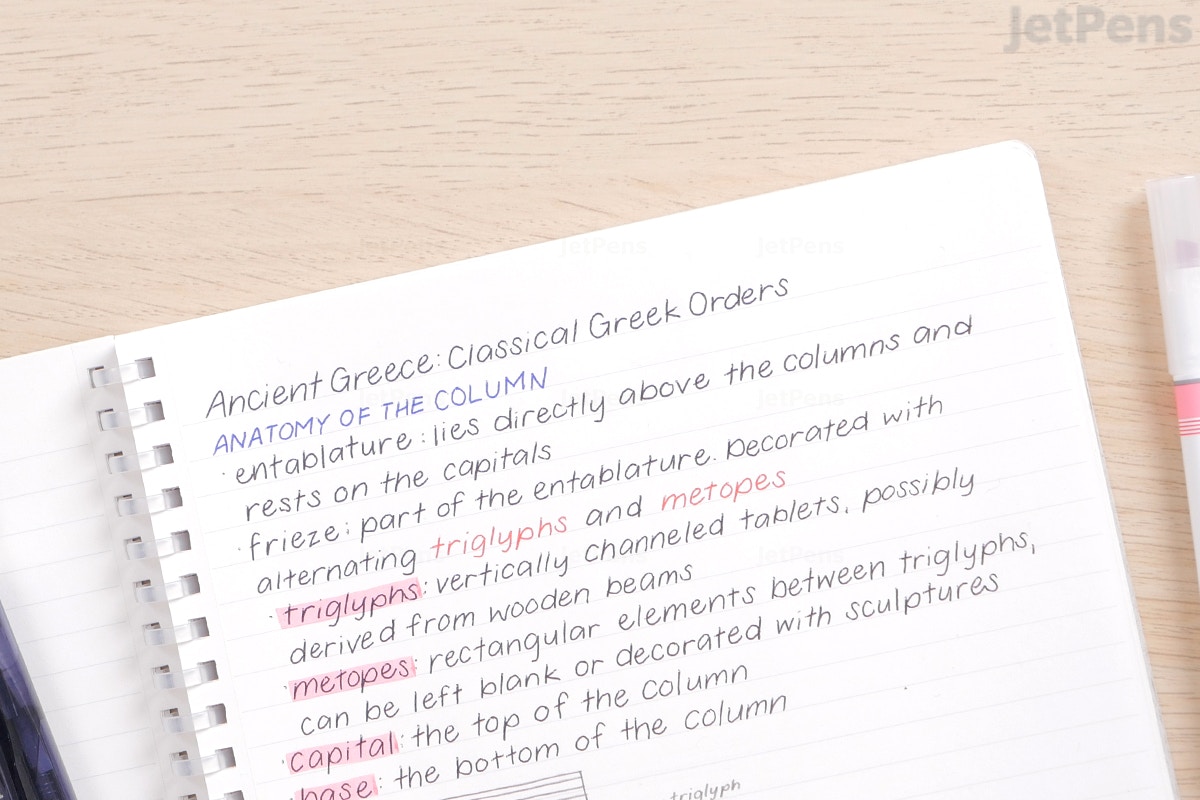 JetPens
JetPens JetPens JetPens
Ancient Greece: Classical Greek Orders
ANATOMY OF THE COLUMN
· entablature: lies directly above the columns and
rests on the capitals
· frieze: part of the entablature. Decorated with
alternating triglyphs and metopes
· triglyphs: vertically channeled tablets, possibly
derived from wooden beams
· metopes: rectangular elements between triglyphs,
can be left blank or decorated with sculptures
· capital: the top of the column
· base: the bottom of the column
triglyph